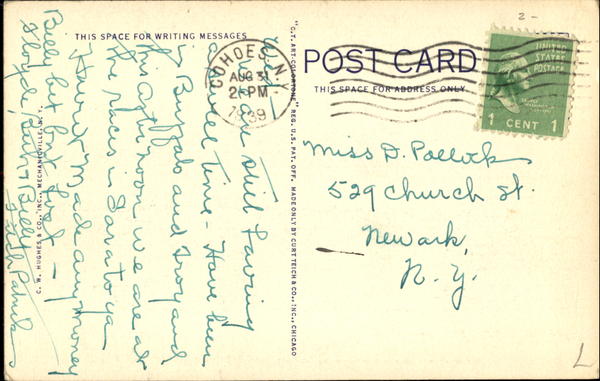 THIS SPACE FOR WRITING MESSAGES
We are still having
a swell time - Have been
in Buffalo and Troy and
this afternoon we are at
the races in Saratoga
Haven't made any money
Billy but don't
Billy
C. W. HUGHES & CO., INC., MECHANICVILLE, N. Y.
"C.T. ART-COLORTONE" REG. U.S. PAT. OFF. MADE ONLY BY CURT TEICH & CO., INC., CHICAGO
COHOES N.Y.
AUG 31
2-PM
1939
POST CARD
THIS SPACE FOR ADDRESS ONLY
2-
UNITED
STATES
POSTAGE
1 CENT 1
Miss D. Pollock
529 Church St.
Newark,
N. Y.
L